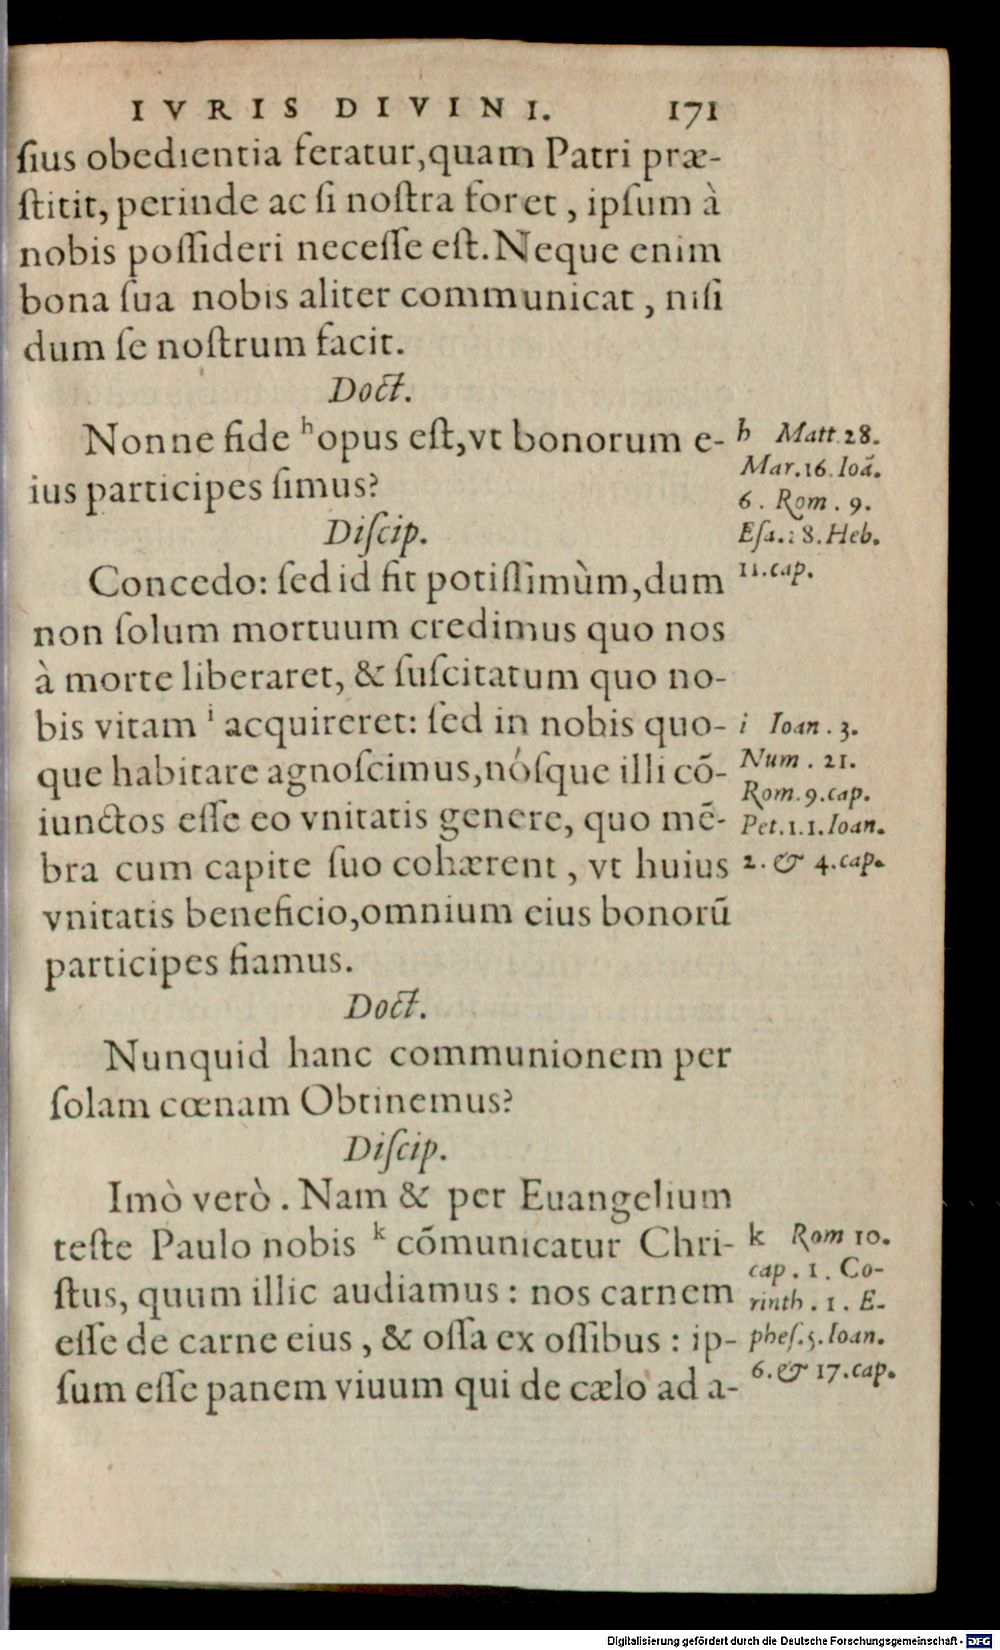 IVRIS DIVINI. 171
ſius obedientia feratur,quam Patri præ-
ſtitit, perinde ac ſi noſtra foret, ipſum à
nobis poſſideri neceſſe eſt. Neque enim
bona ſua nobis aliter communicat, niſi
dum ſe noſtrum facit.
Doct.
Nonne fide ʰopus eſt,vt bonorum e-
ius participes ſimus?
h Matt.28.
Mar.16.Ioã.
6. Rom. 9.
Eſa.28.Heb.
11.cap.
Diſcip.
Concedo: ſed id fit potiſſimùm,dum
non ſolum mortuum credimus quo nos
à morte liberaret, & ſuſcitatum quo no-
bis vitam ⁱ acquireret: ſed in nobis quo-
que habitare agnoſcimus,nóſque illi cõ-
iunctos eſſe eo vnitatis genere, quo mẽ-
bra cum capite ſuo cohærent, vt huius
vnitatis beneficio,omnium eius bonorũ
participes fiamus.
i Ioan. 3.
Num. 21.
Rom.9.cap.
Pet.1.1.Ioan.
2. & 4.cap.
Doct.
Nunquid hanc communionem per
ſolam cœnam Obtinemus?
Diſcip.
Imò verò. Nam & per Euangelium
teſte Paulo nobis ᵏ cõmunicatur Chri-
ſtus, quum illic audiamus: nos carnem
eſſe de carne eius, & oſſa ex oſſibus: ip-
ſum eſſe panem viuum qui de cælo ad a-
k Rom 10.
cap. 1. Co-
rinth. 1. E-
pheſ.5.Ioan.
6.& 17.cap.
Digitalisierung gefördert durch die Deutsche Forschungsgemeinschaft - DFG